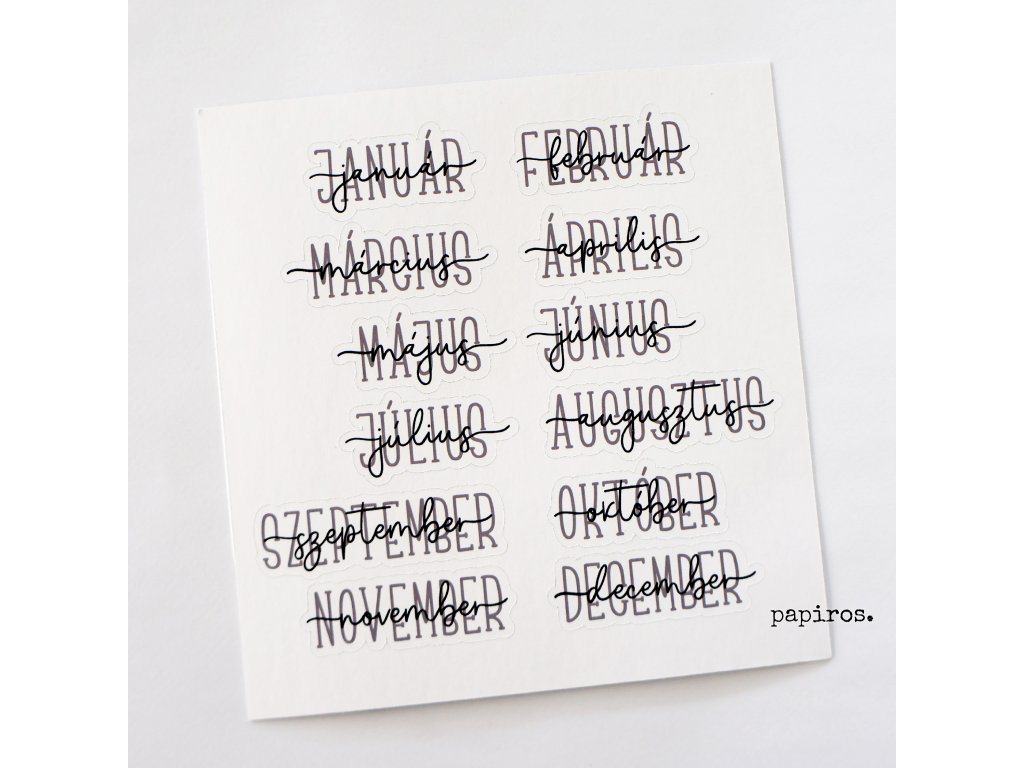 JANUÁR január FEBRUÁR február
MÁRCIUS március ÁPRILIS április
MÁJUS május JÚNIUS június
JÚLIUS július AUGUSZTUS augusztus
SZEPTEMBER szeptember OKTÓBER október
NOVEMBER november DECEMBER december
papiros.